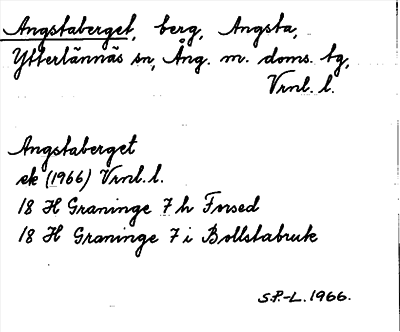 Angstaberget, berg, Angsta,
Ytterlännäs sn, Ång. m. doms. tg,
Vrnl. l.
Angstaberget
ek (1966) Vrnl. l.
18 H Graninge 7 h Forsed
18 H Graninge 7 i Bollstabruk
S.P.-L. 1966.